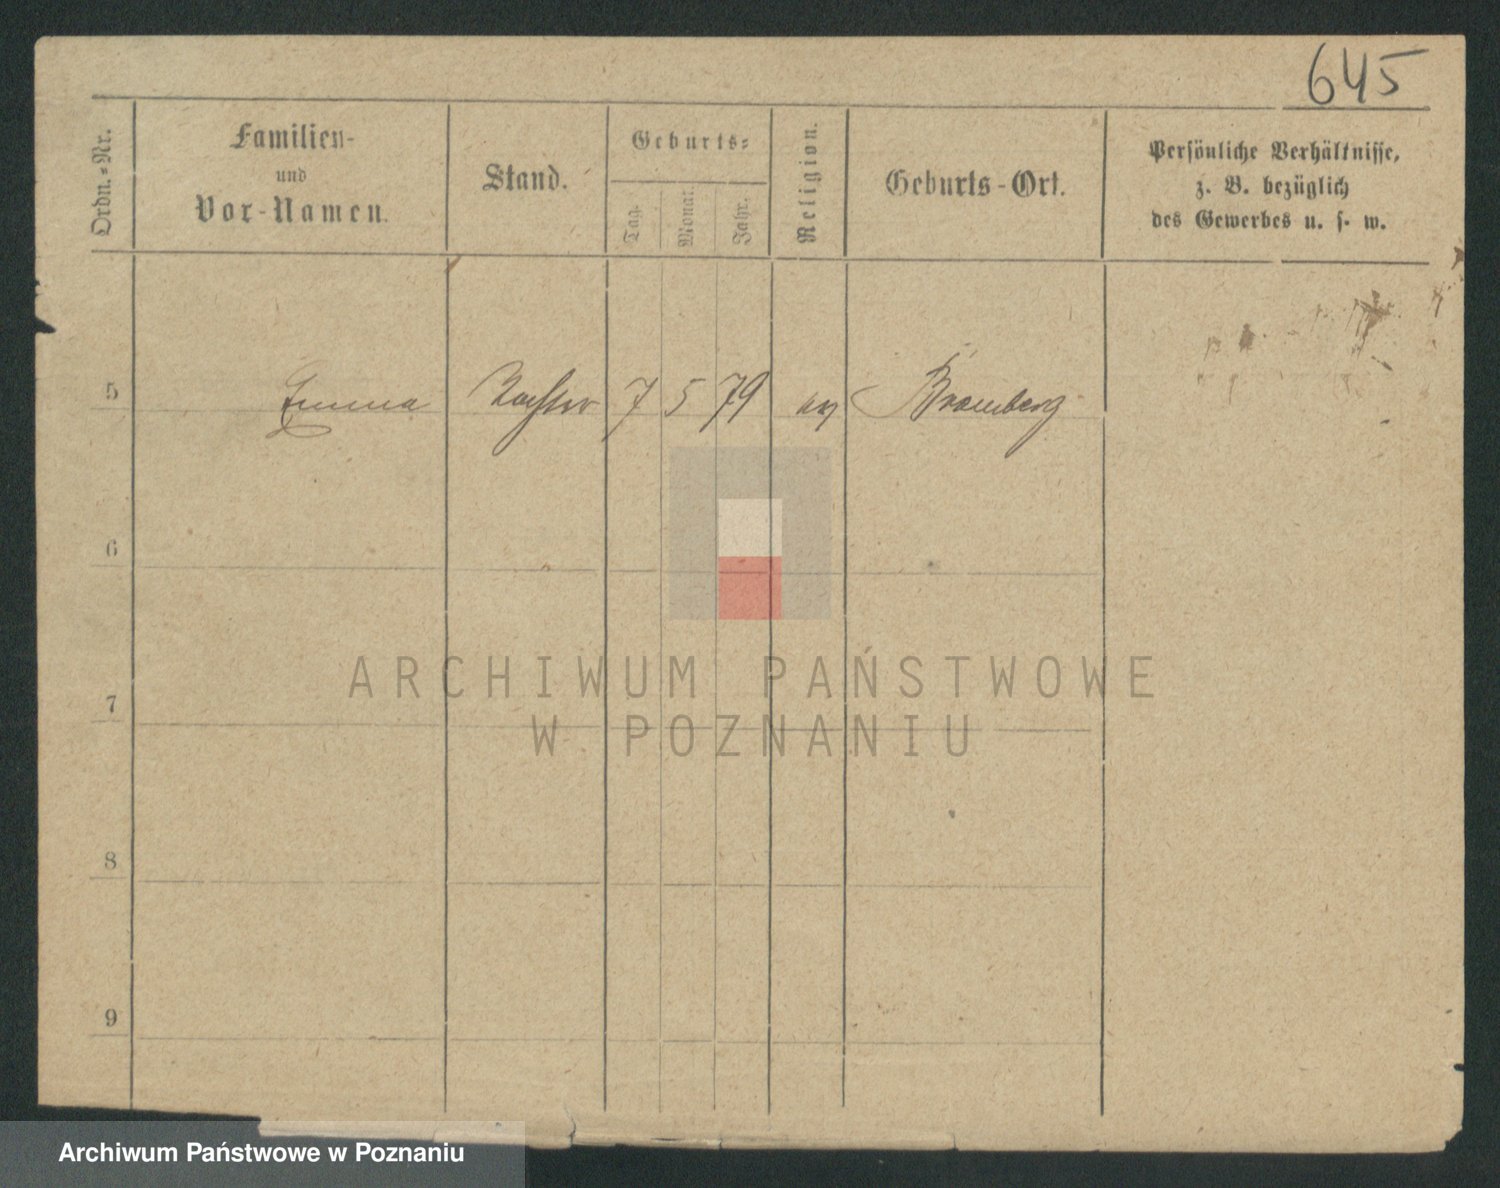 645
Ordn.-Nr.
Familien-
und
Vor-Namen.
Stand.
Geburts-
Tag.
Monat.
Jahr.
Religion.
Geburts-Ort.
Persönliche Verhältnisse,
z. B. bezüglich
des Gewerbes u. s. w.
5 Emma Tochter 7 5 79 ev Bromberg
6
7
8
9
ARCHIWUM PAŃSTWOWE
W POZNANIU
Archiwum Państwowe w Poznaniu